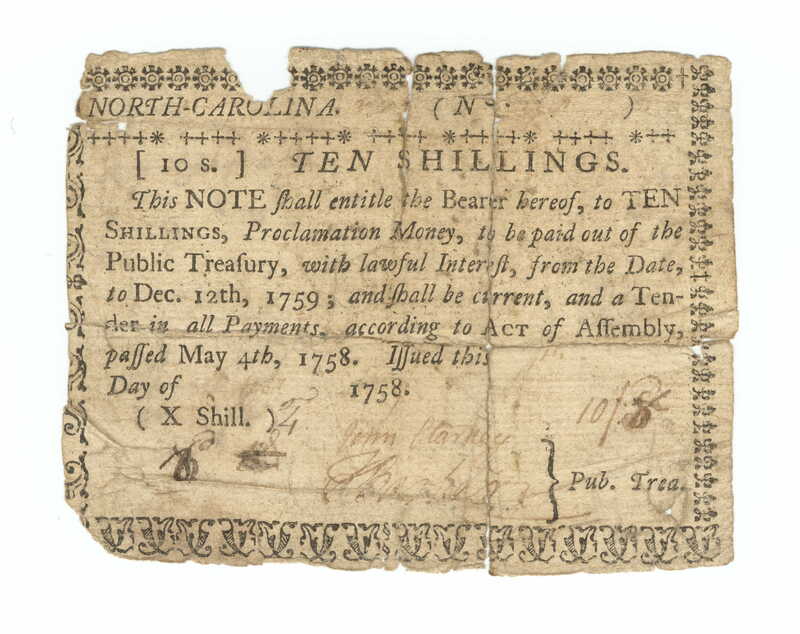 NORTH-CAROLINA. ( N )
[ 10 s. ] TEN SHILLINGS.
This NOTE ſhall entitle the Bearer hereof, to TEN
SHILLINGS, Proclamation Money, to be paid out of the
Public Treaſury, with lawful Intereſt, from the Date,
to Dec. 12th, 1759 ; and ſhall be current, and a Ten-
der in all Payments, according to ACT of Aſſembly,
paſſed May 4th, 1758. Iſſued this
Day of 1758.
( X Shill. )
John Starkey
Pub. Trea.